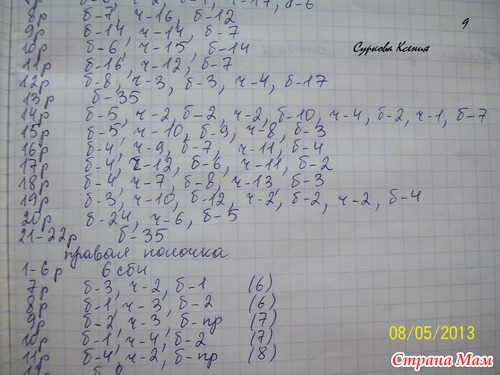 8р б-7, ч-16, б-12
9р б-14, ч-14, б-7
10р б-6, ч-15, б-14
11р б-16, ч-12, б-7
12р б-8, ч-3, б-3, ч-4, б-17
13р б-35
14р б-5, ч-2, б-2, ч-2, б-10, ч-4, б-2, ч-1, б-7
15р б-5, ч-10, б-9, ч-8, б-3
16р б-4, ч-9, б-7, ч-11, б-4
17р б-4, ч-12, б-6, ч-11, б-2
18р б-4, ч-7, б-8, ч-13, б-3
19р б-3, ч-10, б-12, ч-2, б-2, ч-2, б-4
20р б-24, ч-6, б-5
21-22р б-35
правая полочка
1-6р 6 сбн
7р б-3, ч-2, б-1 (6)
8р б-1, ч-3, б-2 (6)
9р б-2, ч-3, б-пр (7)
10р б-1, ч-4, б-2 (7)
11р б-4, ч-2, б-пр (8)
9
Суркова Ксения
08/05/2013
Страна Мам